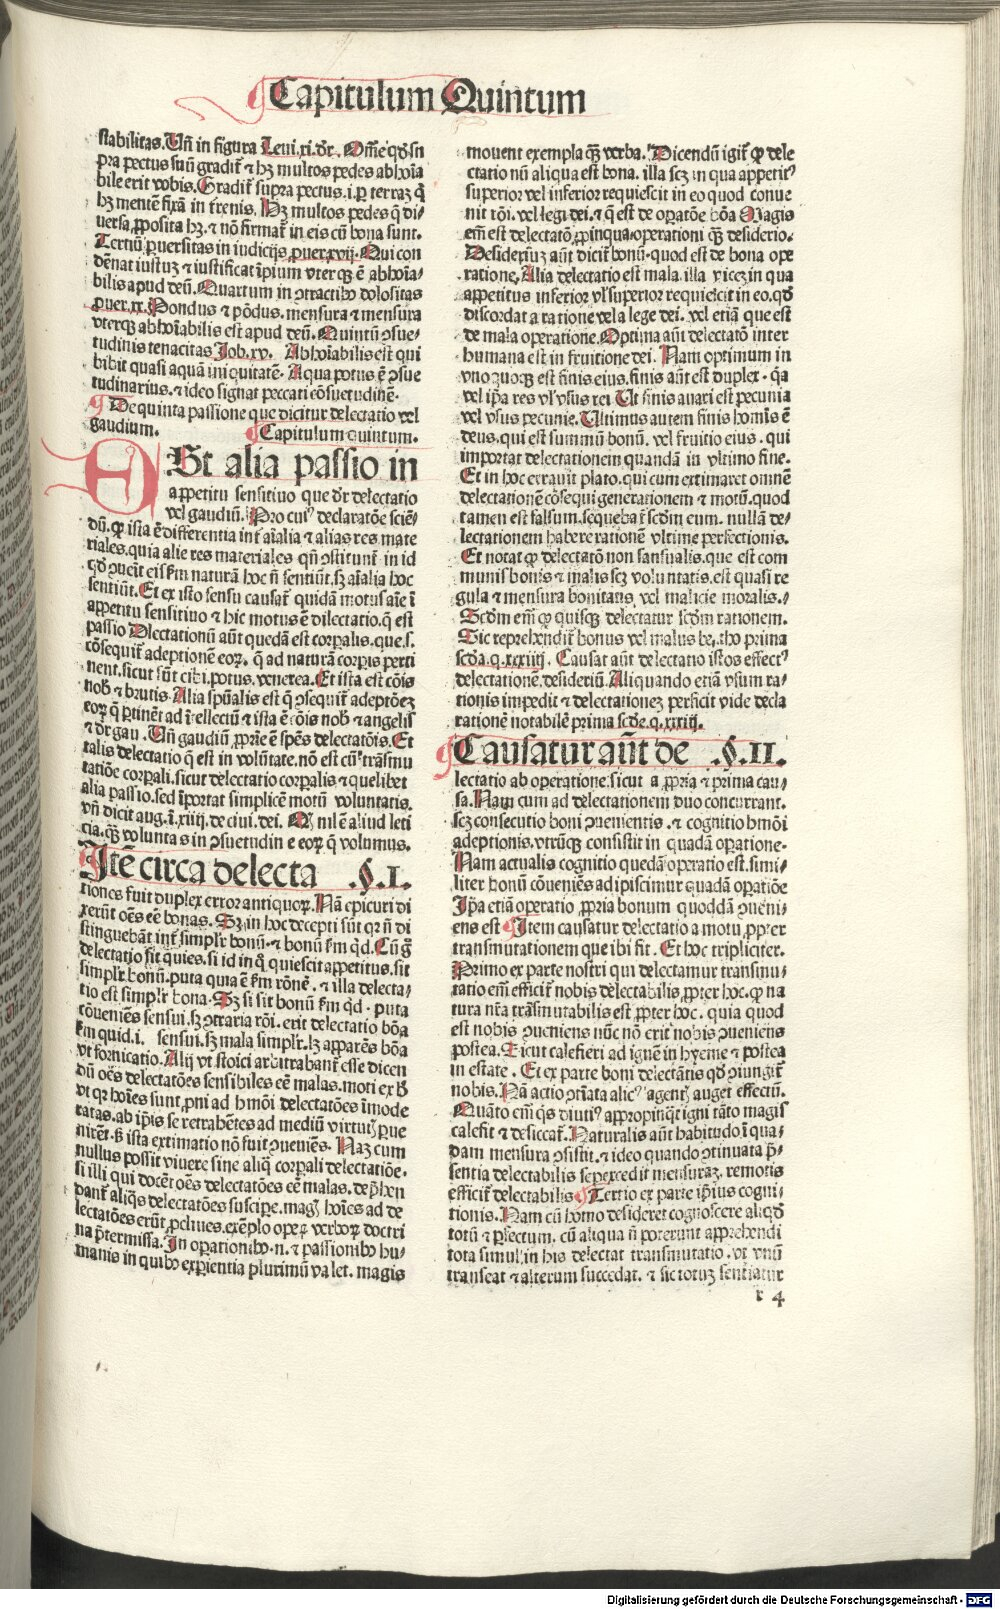 Capitulum Quintum
stabilitas. Vñ in figura Leui. xi. dr̄. Om̄e qd̓ sū
pra pectus suū gradit̄ ⁊ hꝫ multos pedes abhoīa
bile erit vobis. Gradit̄ supra pectus. i. ꝑ terraꝫ q̄
hꝫ mentē fixā in t̓renis. Hꝫ multos pedes q̄ di⸗
uersa ꝓposita hꝫ. ⁊ nō firmat̄ in eis cū bona sunt.
Tertiū ꝑuersitas in iudicijs ꝓuer. xvij. Qui con
dēnat iustuꝫ ⁊ iustificat īpium vterqꝫ ē abhoīa⸗
bilis apud deū. Quartum in ꝯtractibꝰ dolositas
ꝓuer. xx. Pondus ⁊ pōdus. mensura ⁊ mensura
vterqꝫ abhoīabilis est apud deū. Quintū ꝯsue⸗
tudinis tenacitas Job. xv. Abhoīabilis est qui
bibit quasi aquā iniquitatē. Aqua potus ē ꝯsue
tudinarius. ⁊ ideo signat peccati cōsuetudinē.
De quinta passione que dicitur delectatio vel
gaudium. Capitulum quintum.
St alia passio in
appetitu sensitiuo que dr̄ delectatio
vel gaudiū. Pro cuiꝰ declaratōe sciē⸗
dū. ꝙ ista ē differentia int̄ aīalia ⁊ alias res mate
riales. quia alie res materiales qn̄ ꝯstitunt̄ in id
qd̓ ꝯuēit eis ẜm naturā hoc ñ sentiūt. sꝫ aīalia hoc
sentiūt. Et ex isto sensu causat̄ quidā motus aīe ī
appetitu sensitiuo ⁊ hic motus ē dilectatio. q̄ est
passio Dlectationū aūt quedā est corꝑalis. que. s.
cōsequit̄ adeptionē eoꝝ. q̄ ad naturā corpis perti
nent. sicut sūt cibi. potus. venerea. Et ista est cōis
nob̓ ⁊ brutis. Alia spūalis est q̄ ꝯsequit̄ adeptōeꝫ
eoꝝ q̄ ꝑtinēt ad ītellectū ⁊ ista ē cōis nob̓ ⁊ angelis
⁊ dr̄ gau. Vñ gaudiū ꝓprie ē spēs delectatōis. Et
talis delectatio q̄ est in volūtate. nō est cū trāsmu
tatiōe corꝑali. sicut delectatio corꝑalis ⁊ quelibet
alia passio. sed īportat simplicē motū voluntatis.
vñ dicit aug. ī. xiiij. de ciui. dei. Qd̓ nil ē aliud leti
cia. qꝫ voluntas in ꝯsuetudine eoꝝ q̄ volumus.
Itē circa delecta .§.I.
tiones fuit duplex error antiquoꝝ. Nā epicuri di
xerūt oēs eē bonas. Sꝫ in hoc decepti sūt qꝛ ñ di
stinguebāt int̄ simplr̄ bonū. ⁊ bonū ẜm qd̓. Cū g̊
delectatio sit quies. si id in q̊ quiescit appetitus. sit
simplr̄ bonū. puta quia ē ẜm rōnē. ⁊ illa delecta⸗
tio est simplr̄ bona. Sꝫ si sit bonū ẜm qd̓. puta
cōueniēs sensui. sꝫ ꝯtraria rōi. erit delectatio bōa
ẜm quid. i. sensui. sꝫ mala simplr̄. lꝫ apparēs bōa
vt fornicatio. Alij vt stoici arbitrabant̄ esse dicen
dū oēs delectatōes sensibiles eē malas. moti ex b̓
vt qꝛ hoīes sunt ꝓni ad hmōi delectatōes īmode
ratas. ab ip̄is se retrahētes ad mediū virtutꝭ ꝑue
nirēt. ẜ ista extimatio nō fuit ꝯueniēs. Naꝫ cum
nullus possit viuere sine aliq̄ corꝑali delectatiōe.
si illi qui docēt oēs delectatōes eē malas. dep̄hen
dant̄ aliq̄s delectatōes suscipe. magꝭ hoīes ad de
lectatōes erūt ꝓcliues. exēplo opeꝝ verboꝝ doctri
na p̄termissa. In oꝑationibꝰ. n. ⁊ passionibꝰ hu⸗
manis in quibꝰ exꝑientia plurimū valet. magis
mouent exempla qꝫ verba. Dicendū igit̄ ꝙ dele
ctatio nū aliqua est bona. illa scꝫ in qua appetitꝰ
superior vel inferior requiescit in eo quod conue
nit rōi. vel legi dei. ⁊ q̄ est de oꝑatōe bōa Magis
em̄ est delectatō ꝓpinqua operationi qꝫ desiderio.
Desideriuꝫ aūt dicit̄ bonū. quod est de bona ope
ratione. Alia delectatio est mala. illa videꝫ in qua
appetitus inferior vl̓ superior requiescit in eo. qd̓
discordat a ratione vel a lege dei. vel etiā que est
de mala operatione. Optima aūt delectatō inter
humana est in fruitione dei. Nam optimum in
vnoquoqꝫ est finis eius. finis aūt est duplex. q̄a
vel ip̄a res vl̓ vsus rei Vt finis auari est pecunia
vel vsus pecunie. Vltimus autem finis homīs ē
deus. qui est summū bonū. vel fruitio eius. qui
importat delectationem quandā in vltimo fine.
Et in hoc errauit plato. qui cum extimaret omnē
delectationē cōsequi generationem ⁊ motū. quod
tamen est falsum. sequebat̄ scdm eum. nullā de⸗
lectationem habere rationē vltime perfectionis.
Et notat ꝙ delectatō non sansualis. que est com
munis bonis ⁊ malis scꝫ voluntatis. est quasi re
gula ⁊ mensura bonitatis. vel malicie moralis.
Scdm em̄ ꝙ quisqꝫ delectatur scdm rationem.
Sic reprehendit̄ bonus vel malus be. tho prima
scd̄a. q. xxxiiij. Causat aūt delectatio istos effectꝰ
delectationē. desideriū. Aliquando etiā vsum ra⸗
tionis impedit ⁊ delectationeꝫ perficit vide decla
rationē notabilē prima scd̄e. q. xxxiij.
Causatur aūt de .§.II.
lectatio ab operatione. sicut a ꝓpria ⁊ prima cau⸗
sa. Nam cum ad delectationem duo concurrant.
scꝫ consecutio boni ꝯuenientis. ⁊ cognitio hmōi
adeptionis. vtrūqꝫ consistit in quadā oꝑatione⸗
Nam actualis cognitio quedā operatio est. simi⸗
liter bonū cōueniēs adipiscimur quadā oꝑatiōe
Ip̄a etiā operatio ꝓpria bonum quoddā ꝯueni⸗
ens est Item causatur delectatio a motu ꝓpter
transmutationem que ibi fit. Et hoc tripliciter.
Primo ex parte nostri qui delectamur transmu⸗
tatio em̄ efficit̄ nobis delectabilis ꝓpter hoc. ꝙ na
tura nr̄a trāsmutabilis est ꝓpter hoc. quia quod
est nobis ꝯueniens nūc nō erit nobis ꝯueniens
postea. Sicut calefieri ad ignē in hyeme ⁊ postea
in estate. Et ex parte boni delectātis qd̓ ꝯiungit̄
nobis. Nā actio ꝯtīata alicꝰ agentꝭ auget effectū.
Quāto em̄ qs diutiꝰ appropinqt̄ igni tāto magis
calefit ⁊ desiccat̄. Naturalis aūt habitudo ī qua⸗
dam mensura ꝯsistit. ⁊ ideo quando ꝯtinuata p̄⸗
sentia delectabilis sepexcedit mensuraꝫ. remotis
efficit̄ delectabilis Tertio ex parte ip̄ius cogni⸗
tionis. Nam cū homo desideret cognoscere aliqd̓
totū ⁊ ꝑfectum. cū aliqua ñ poterunt apprehendi
tota simul. in his delectat transmutatio. vt vnū
transeat ⁊ alterum succedat. ⁊ sic totuꝫ sentiatur
r 4
Digitalisierung gefördert durch die Deutsche Forschungsgemeinschaft - DFG